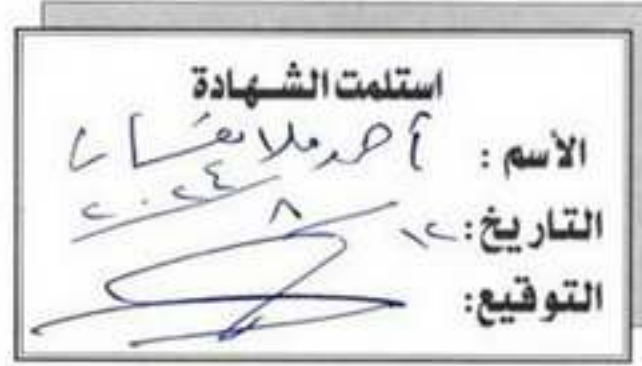 استلمت الشهادة
الأسم : أحمد ملا
التاريخ: ١٢ ٨ ٢٠٢٤
التوقيع: